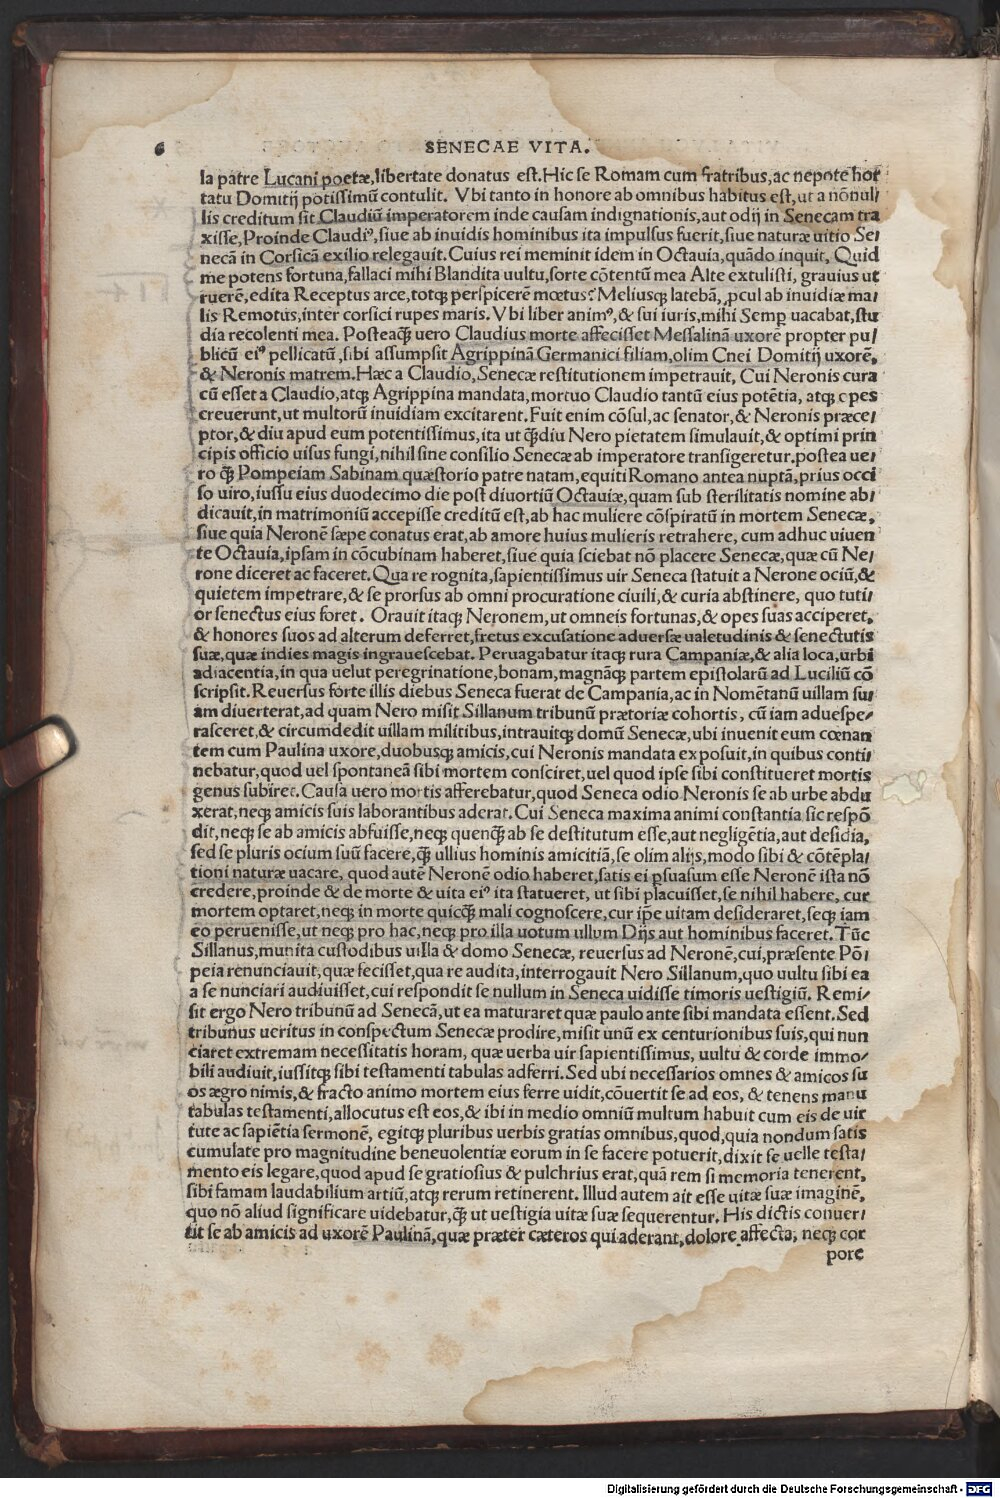 6 SENECAE VITA.
la patre Lucani poetæ, libertate donatus est. Hic se Romam cum fratribus, ac nepote hor
tatu Domitij potissimū contulit. Vbi tanto in honore ab omnibus habitus est, ut a nōnul/
lis creditum sit Claudiū imperatorem inde causam indignationis, aut odij in Senecam tra
xisse, Proinde Claudiꝰ, siue ab inuidis hominibus ita impulsus fuerit, siue naturæ uitio Se/
necā in Corsicā exilio relegauit. Cuius rei meminit idem in Octauia, quādo inquit, Quid
me potens fortuna, fallaci mihi Blandita uultu, sorte cōtentū mea Alte extulisti, grauius ut
ruerē, edita Receptus arce, totqꝫ perspicerē mœtus? Meliusqꝫ latebā, ꝓcul ab inuidiæ ma/
lis Remotus, inter corsici rupes maris. Vbi liber animꝰ, & sui iuris, mihi Semꝑ uacabat, stu
dia recolenti mea. Posteaq̄ȝ uero Claudius morte affecisset Messalinā uxorē propter pu/
blicū eiꝰ pellicatū, sibi assumpsit Agrippinā Germanici filiam, olim Cnei Domitij uxorē,
& Neronis matrem. Hæc a Claudio, Senecæ restitutionem impetrauit, Cui Neronis cura
cū esset a Claudio, atqꝫ Agrippina mandata, mortuo Claudio tantū eius potētia, atqꝫ opes
creuerunt, ut multorū inuidiam excitarent. Fuit enim cōsul, ac senator, & Neronis præce/
ptor, & diu apud eum potentissimus, ita ut q̄ȝdiu Nero pietatem simulauit, & optimi prin
cipis officio uisus fungi, nihil sine consilio Senecæ ab imperatore transigeretur. postea ue/
ro q̄ȝ Pompeiam Sabinam quæstorio patre natam, equiti Romano antea nuptā, prius occi
so uiro, iussu eius duodecimo die post diuortiū Octauiæ, quam sub sterilitatis nomine ab/
dicauit, in matrimoniū accepisse creditū est, ab hac muliere cōspiratū in mortem Senecæ,
siue quia Neronē sæpe conatus erat, ab amore huius mulieris retrahere, cum adhuc uiuen
te Octauia, ipsam in cōcubinam haberet, siue quia sciebat nō placere Senecæ, quæ cū Ne/
rone diceret ac faceret. Qua re rognita, sapientissimus uir Seneca statuit a Nerone ociū, &
quietem impetrare, & se prorsus ab omni procuratione ciuili, & curia abstinere, quo tuti/
or senectus eius foret. Orauit itaqꝫ Neronem, ut omneis fortunas, & opes suas acciperet,
& honores suos ad alterum deferret, fretus excusatione aduersæ ualetudinis & senectutis
suæ, quæ indies magis ingrauescebat. Peruagabatur itaqꝫ rura Campaniæ, & alia loca, urbi
adiacentia, in qua uelut peregrinatione, bonam, magnāqꝫ partem epistolarū ad Luciliū cō
scripsit. Reuersus forte illis diebus Seneca fuerat de Campania, ac in Nomētanū uillam su/
am diuerterat, ad quam Nero misit Sillanum tribunū prætoriæ cohortis, cū iam aduespe/
rasceret, & circumdedit uillam militibus, intrauitqꝫ domū Senecæ, ubi inuenit eum cœnan
tem cum Paulina uxore, duobusqꝫ amicis, cui Neronis mandata exposuit, in quibus conti
nebatur, quod uel spontaneā sibi mortem consciret, uel quod ipse sibi constitueret mortis
genus subiret. Causa uero mortis afferebatur, quod Seneca odio Neronis se ab urbe abdu
xerat, neqꝫ amicis suis laborantibus aderat. Cui Seneca maxima animi constantia sic respō
dit, neqꝫ se ab amicis abfuisse, neqꝫ quenq̄ȝ ab se destitutum esse, aut negligētia, aut desidia,
sed se pluris ocium suū facere, q̄ȝ ullius hominis amicitiā, se olim alijs, modo sibi & cōtēpla/
tioni naturæ uacare, quod autē Neronē odio haberet, satis ei ꝑsuasum esse Neronē ista nō
credere, proinde & de morte & uita eiꝰ ita statueret, ut sibi placuisset, se nihil habere, cur
mortem optaret, neqꝫ in morte quicq̄ȝ mali cognoscere, cur ip̄e uitam desideraret, seqꝫ iam
eo peruenisse, ut neqꝫ pro hac, neqꝫ pro illa uotum ullum Dijs aut hominibus faceret. Tūc
Sillanus, munita custodibus uilla & domo Senecæ, reuersus ad Neronē, cui, præsente Pō/
peia renunciauit, quæ fecisset, qua re audita, interrogauit Nero Sillanum, quo uultu sibi ea
a se nunciari audiuisset, cui respondit se nullum in Seneca uidisse timoris uestigiū. Remi/
sit ergo Nero tribunū ad Senecā, ut ea maturaret quæ paulo ante sibi mandata essent. Sed
tribunus ueritus in conspectum Senecæ prodire, misit unū ex centurionibus suis, qui nun
ciaret extremam necessitatis horam, quæ uerba uir sapientissimus, uultu & corde immo/
bili audiuit, iussitqꝫ sibi testamenti tabulas adferri. Sed ubi necessarios omnes & amicos su
os ægro nimis, & fracto animo mortem eius ferre uidit, cōuertit se ad eos, & tenens manu
tabulas testamenti, allocutus est eos, & ibi in medio omniū multum habuit cum eis de uir
tute ac sapiētia sermonē, egitqꝫ pluribus uerbis gratias omnibus, quod, quia nondum satis
cumulate pro magnitudine beneuolentiæ eorum in se facere potuerit, dixit se uelle testa/
mento eis legare, quod apud se gratiosius & pulchrius erat, quā rem si memoria tenerent,
sibi famam laudabilium artiū, atqꝫ rerum retinerent. Illud autem ait esse uitæ suæ imaginē,
quo nō aliud significare uidebatur, q̄ȝ ut uestigia uitæ suæ sequerentur. His dictis conuer/
tit se ab amicis ad uxorē Paulinā, quæ præter cæteros qui aderant, dolore affecta, neqꝫ cor
pore
Digitalisierung gefördert durch die Deutsche Forschungsgemeinschaft - DFG